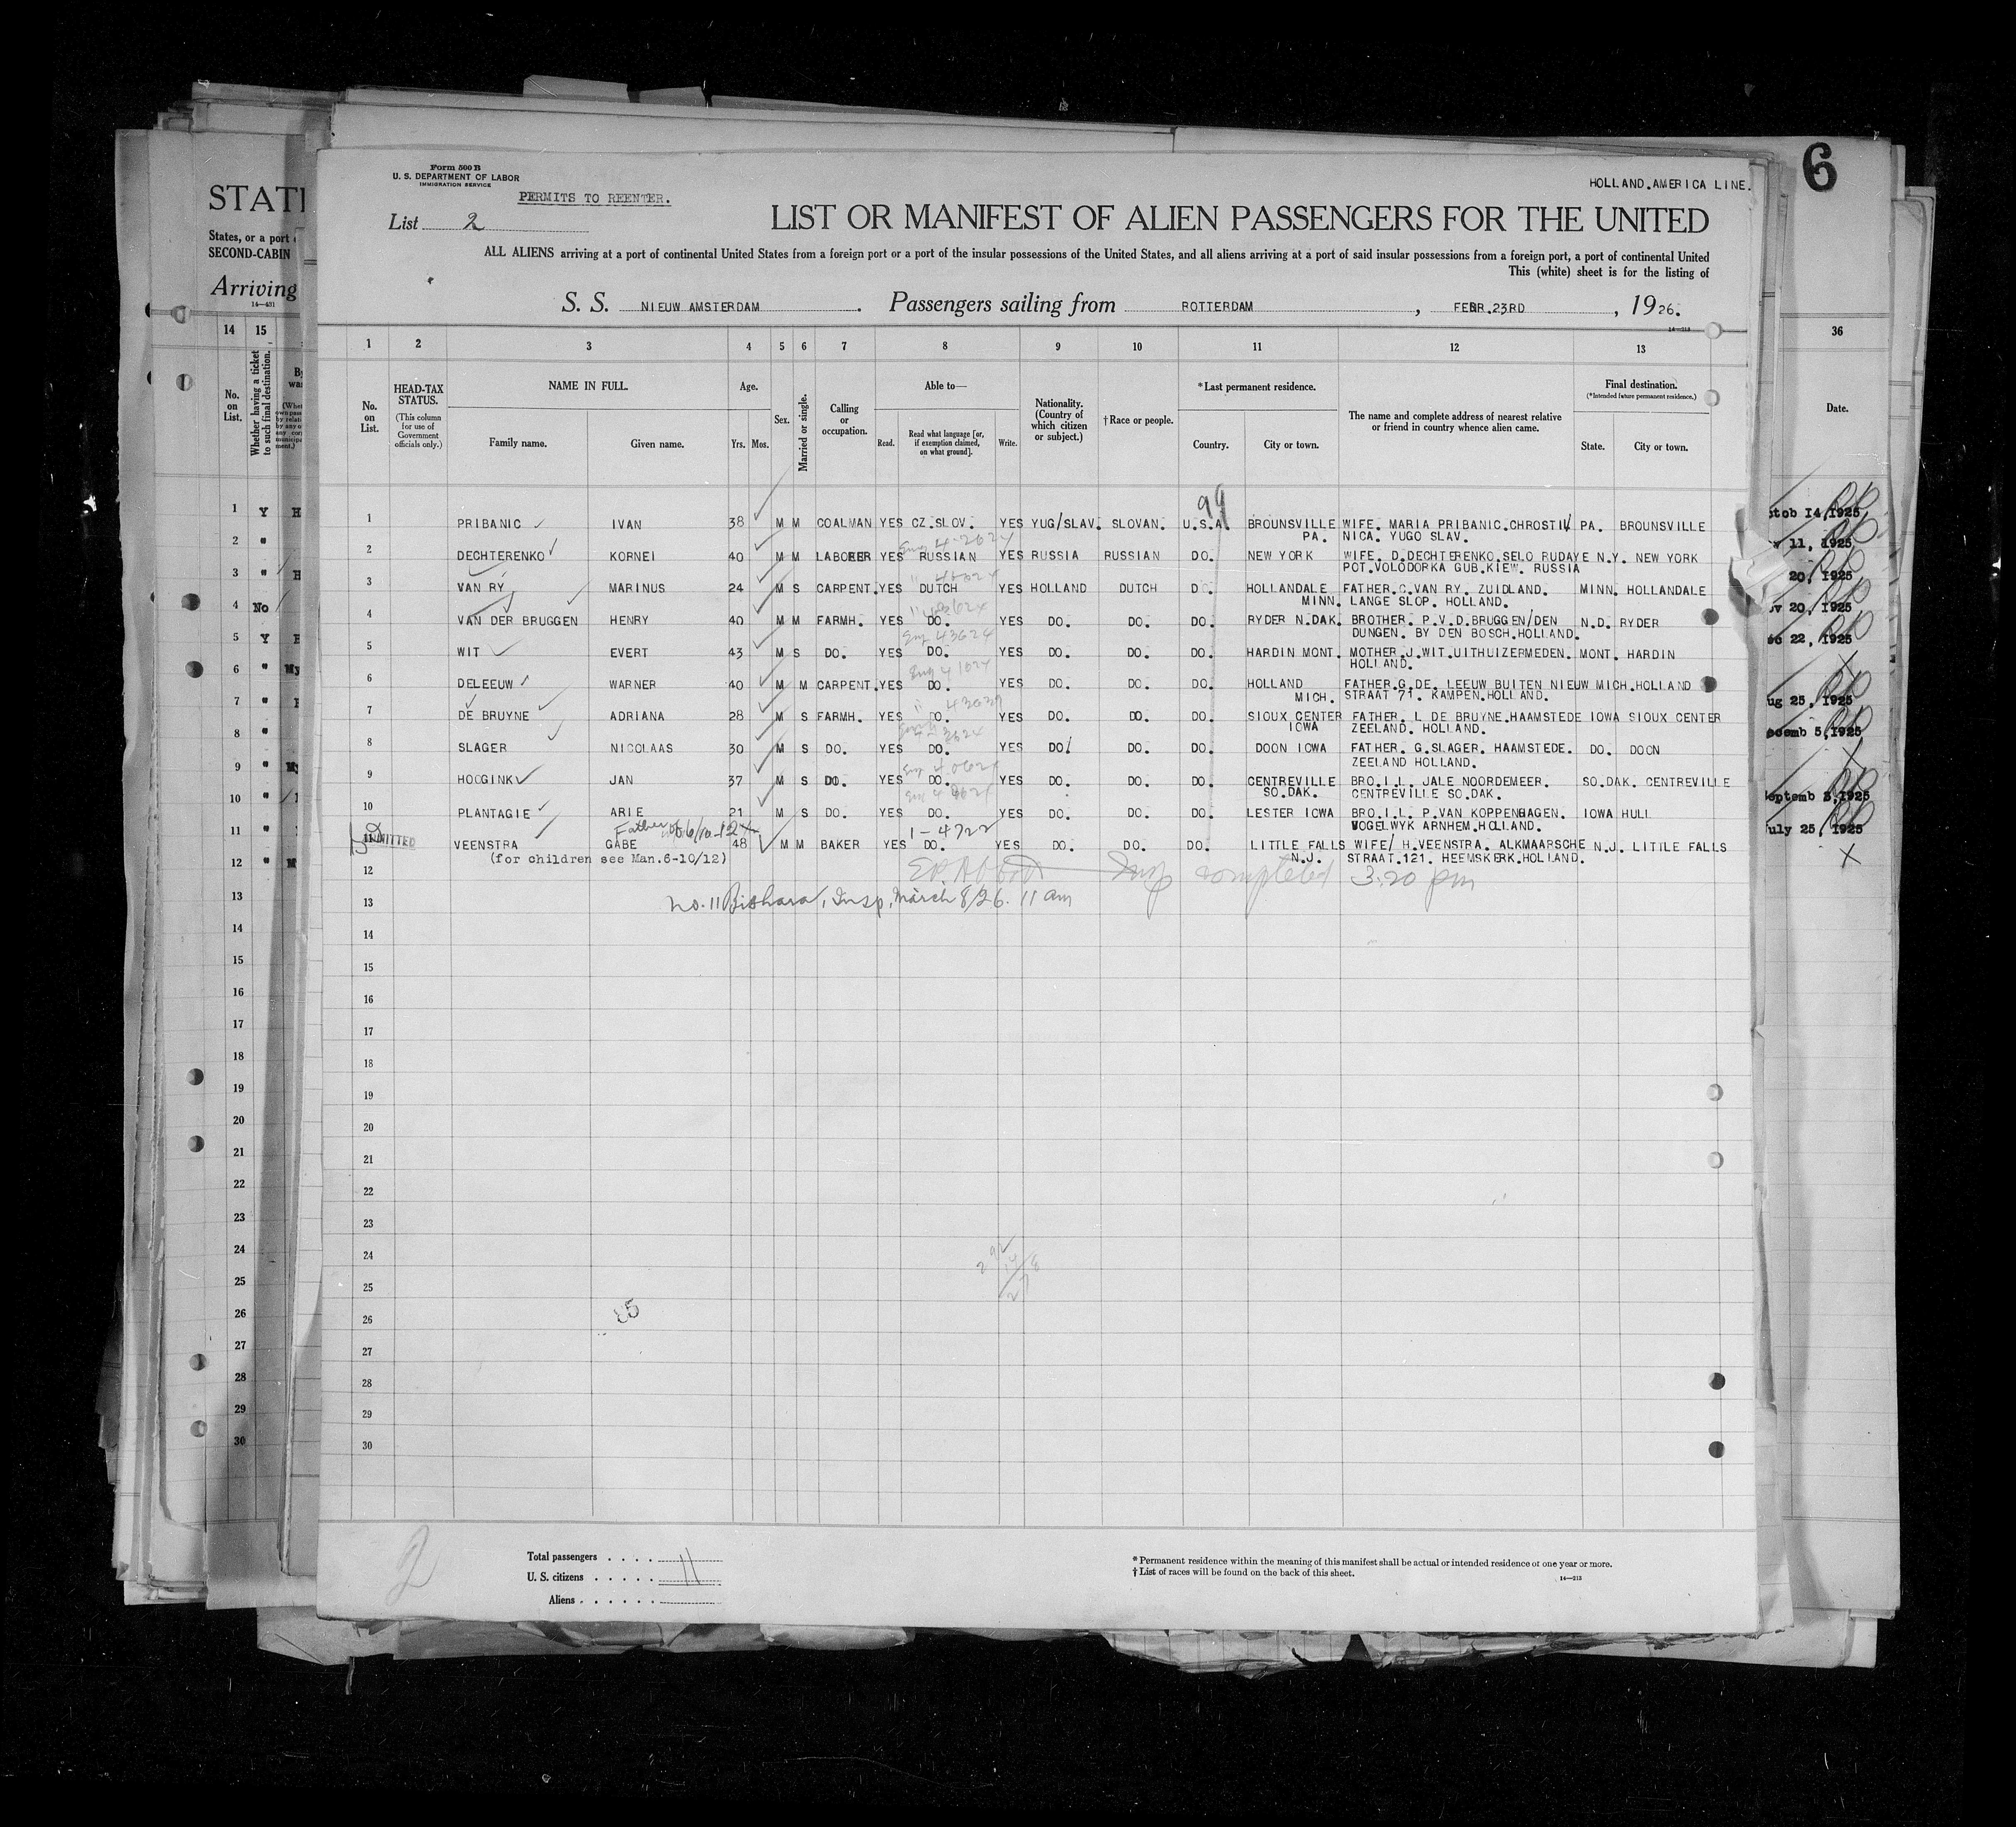 Form 500 B
U. S. DEPARTMENT OF LABOR
IMMIGRATION SERVICE
PERMITS TO REENTER.
HOLLAND.AMERICA LINE.
6
List 2
LIST OR MANIFEST OF ALIEN PASSENGERS FOR THE UNITED
ALL ALIENS arriving at a port of continental United States from a foreign port or a port of the insular possessions of the United States, and all aliens arriving at a port of said insular possessions from a foreign port, a port of continental United
This (white) sheet is for the listing of
S. S. NIEUW AMSTERDAM. Passengers sailing from ROTTERDAM, FEBR.23RD, 1926.
14—213
1 2 3 4 5 6 7 8 9 10 11 12 13
No. on List.
HEAD-TAX STATUS.
(This column for use of Government officials only.)
NAME IN FULL.
Family name. Given name.
Age.
Yrs. Mos.
Sex.
Married or single.
Calling or occupation.
Able to—
Read. Read what language [or, if exemption claimed, on what ground]. Write.
Nationality. (Country of which citizen or subject.)
† Race or people.
* Last permanent residence.
Country. City or town.
The name and complete address of nearest relative or friend in country whence alien came.
Final destination.
(*Intended future permanent residence.)
State. City or town.
99
1 PRIBANIC IVAN 38 M M COALMAN YES CZ.SLOV. YES YUG/SLAV. SLOVAN. U.S.A. BROUNSVILLE WIFE. MARIA PRIBANIC.CHROSTIL PA. BROUNSVILLE
PA. NICA. YUGO SLAV.
2 DECHTERENKO KORNEI 40 M M LABORER YES RUSSIAN YES RUSSIA RUSSIAN DO. NEW YORK WIFE. D.DECHTERENKO.SELO RUDAYE N.Y. NEW YORK
POT.VOLODORKA GUB.KIEW. RUSSIA
3 VAN RY MARINUS 24 M S CARPENT. YES DUTCH YES HOLLAND DUTCH DO. HOLLANDALE FATHER.C.VAN RY. ZUIDLAND. MINN. HOLLANDALE
MINN. LANGE SLOP. HOLLAND.
4 VAN DER BRUGGEN HENRY 40 M M FARMH. YES DO. YES DO. DO. DO. RYDER N.DAK. BROTHER. P.V.D.BRUGGEN/DEN N.D. RYDER
DUNGEN. BY DEN BOSCH.HOLLAND.
5 WIT EVERT 43 M S DO. YES DO. YES DO. DO. DO. HARDIN MONT. MOTHER.J.WIT.UITHUIZERMEDEN. MONT. HARDIN
HOLLAND.
6 DELEEUW WARNER 40 M M CARPENT. YES DO. YES DO. DO. DO. HOLLAND FATHER.G.DE. LEEUW BUITEN NIEUW MICH.HOLLAND
MICH. STRAAT 71. KAMPEN.HOLLAND.
7 DE BRUYNE ADRIANA 28 M S FARMH. YES DO. YES DO. DO. DO. SIOUX CENTER FATHER. L DE BRUYNE.HAAMSTEDE IOWA SIOUX CENTER
IOWA ZEELAND. HOLLAND.
8 SLAGER NICOLAAS 30 M S DO. YES DO. YES DO. DO. DO. DOON IOWA FATHER. G.SLAGER. HAAMSTEDE. DO. DOON
ZEELAND HOLLAND.
9 HOOGINK JAN 37 M S DO. YES DO. YES DO. DO. DO. CENTREVILLE BRO.I.L. JALE NOORDEMEER. SO.DAK. CENTREVILLE
SO.DAK. CENTREVILLE SO.DAK.
10 PLANTAGIE ARIE 21 M S DO. YES DO. YES DO. DO. DO. LESTER IOWA BRO.I.L. P.VAN KOPPENHAGEN. IOWA HULL
VOGELWYK ARNHEM.HOLLAND.
Father of 6/10-12 1-4722
11 VEENSTRA GABE 48 M M BAKER YES DO. YES DO. DO. DO. LITTLE FALLS WIFE/ H.VEENSTRA. ALKMAARSCHE N.J. LITTLE FALLS
(for children see Man.6-10/12) N.J. STRAAT.121. HEEMSKERK.HOLLAND.
12 Insp completed 3.20 pm
13 No. 11 Bishara, Insp, March 8/26. 11 am
14
15
16
17
18
19
20
21
22
23
24
25
26
27
28
29
30
2
Total passengers
U. S. citizens 11
Aliens
* Permanent residence within the meaning of this manifest shall be actual or intended residence of one year or more.
† List of races will be found on the back of this sheet.
14—213
STATE
States, or a port
SECOND-CABIN
Arriving
14—431
14 15
No. on List.
Whether having a ticket to such final destination.
1 Y
2 "
3 "
4 No
5 Y
6 "
7 "
8 "
9 "
10 "
11 "
12 "
13
14
15
16
17
18
19
20
21
22
23
24
25
26
27
28
29
30
36
Date.
14,1925
11, 1925
20, 1925
20, 1925
22, 1925
25, 1925
5,1925
3,1925
25, 1925